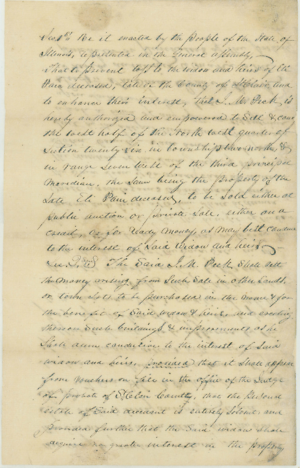 Sec 1st Be it enacted by the people of the State of
Illinois, represented in the General Assembly,
That to prevent loss to the widow and heirs of Eli
Paine deceased, late of the County of and
to enhance their interest, that Peck, is
hereby authorized and empowered to Sell & convey
the West half of the North West quarter of
Section twenty Six in township north &
in range Seven West of the third principal
Meridian, the Same being the property of the
Late Eli Paine deceased, to be sold either at
public auction or private Sale, either on a
credit, or for ready money, as may best conduce
to the interest of Said widow and heirs
The Said Peck Shall
the money arising from Such Sale in other Lands
or town Lots to be purchased in the name & for
the benefit of Said widow & heirs and erecting
thereon Such buildings & improvements as
Shall conducive to the interest of Said
widow and heirs, provided that it Shall appear
from vouchers on file in the office of the Judge
of probate of County, that the personal
estate of Said deceased is entirely Solvent and
provided further that the Said widow Shall
acquire no greater interest in the property